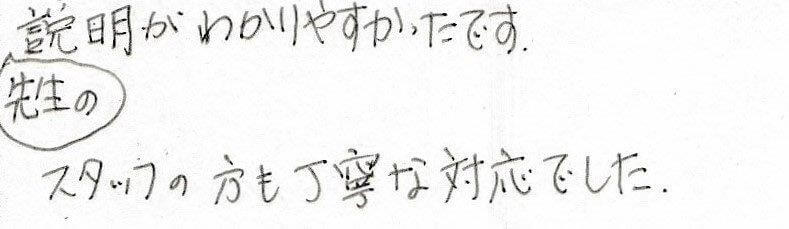 説明がわかりやすかったです.
先生の
スタッフの方も丁寧な対応でした.